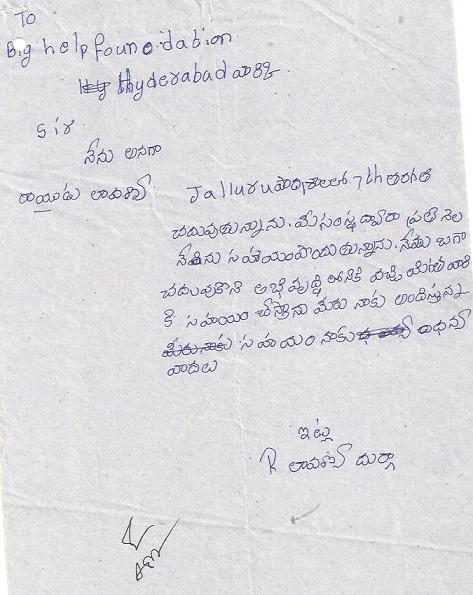 To
Big help foundation
Hyderabad వారికి
Sir.
నేను అనగా
రాయుడు లావణ్య Jalluru పాఠశాలలో 7th తరగతి
చదువుతున్నాను. మీ సంస్థ ద్వారా ప్రతి నెల
నేను సహాయం పొందుతున్నాను. నేను బాగా
చదువుకొని అభివృద్ధి లోనికి వచ్చి
కి సహాయం చేస్తాను మీరు నాకు అందిస్తున్న
సహాయం నాకు
వాదలు
ఇట్లు
R లావణ్య దుర్గా